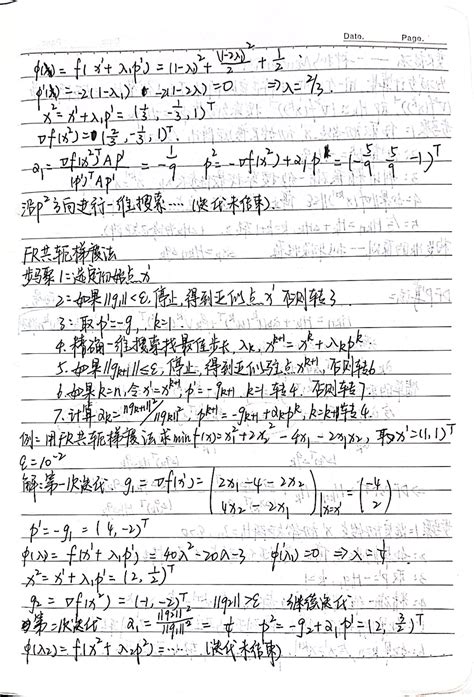 Date.    Page.
φ(λ) = f(x¹+λ₁p¹) = (1-λ)² + (1-2λ)²/2 + 1/2
φ'(λ) = -2(1-λ₁) -2(1-2λ) = 0  ⇒ λ = 2/3.
x² = x¹+λ₁p¹ = (1/3, -1/3, 1)ᵀ
∇f(x²) = (2/3, -1/3, 1)ᵀ.
α₁ = ∇f(x²)ᵀAp¹ / (p¹)ᵀAp¹ = -1/9  p² = -∇f(x²)+α₁p¹ = (-5/9 5/9 -1)ᵀ
沿p²方向进行一维搜索……(迭代未结束).
FR共轭梯度法
步骤1=选定初始点x¹
2=如果||g₁||<ε,停止,得到近似点x¹ 否则转3
3=取p¹=-g₁ k=1
4.精确一维搜索找最佳步长λₖ, xᵏ⁺¹=xᵏ+λₖpᵏ.
5.如果||gₖ₊₁||≤ε,停止,得到近似点xᵏ⁺¹ 否则转6
6.如果k=n,令x¹=xᵏ⁺¹, p¹=-gₖ₊₁ k=1 转4, 否则转7.
7.计算αₖ=||gₖ₊₁||²/||gₖ||², pᵏ⁺¹=-gₖ₊₁+αₖpᵏ, k=k+1转4.
例=用FR共轭梯度法求minf(x)=x₁²+2x₂²-4x₁-2x₁x₂, 取x¹=(1,1)ᵀ
ε=10⁻²
解:第一次迭代 g₁=∇f(x¹)=(2x₁-4-2x₂ 4x₂-2x₁)|x=x¹=(-4 2)
p¹=-g₁=(4,-2)ᵀ
φ(λ)=f(x¹+λ₁p¹)=40λ²-20λ-3  φ'(λ₁)=0 ⇒ λ=1/4
x²=x¹+λ₁p¹=(2, 1/2)ᵀ
g₂=∇f(x²)=(-1,-2)ᵀ  ||g₂||>ε  继续迭代
第二次迭代 α₁=||g₂||²/||g₁||²=1/4  p²=-g₂+α₁p¹=(2, 3/2)ᵀ
φ(λ₂)=f(x²+λ₂p²)=……  (迭代未结束)